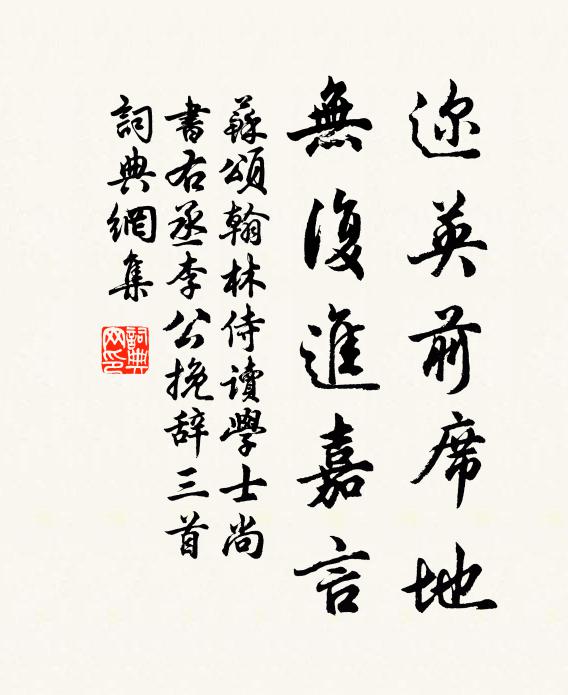 迩英前席地
無復進嘉言
蘇頌翰林侍讀學士尚
書右丞李公挽辞三首
詞典網集
詞典
网印